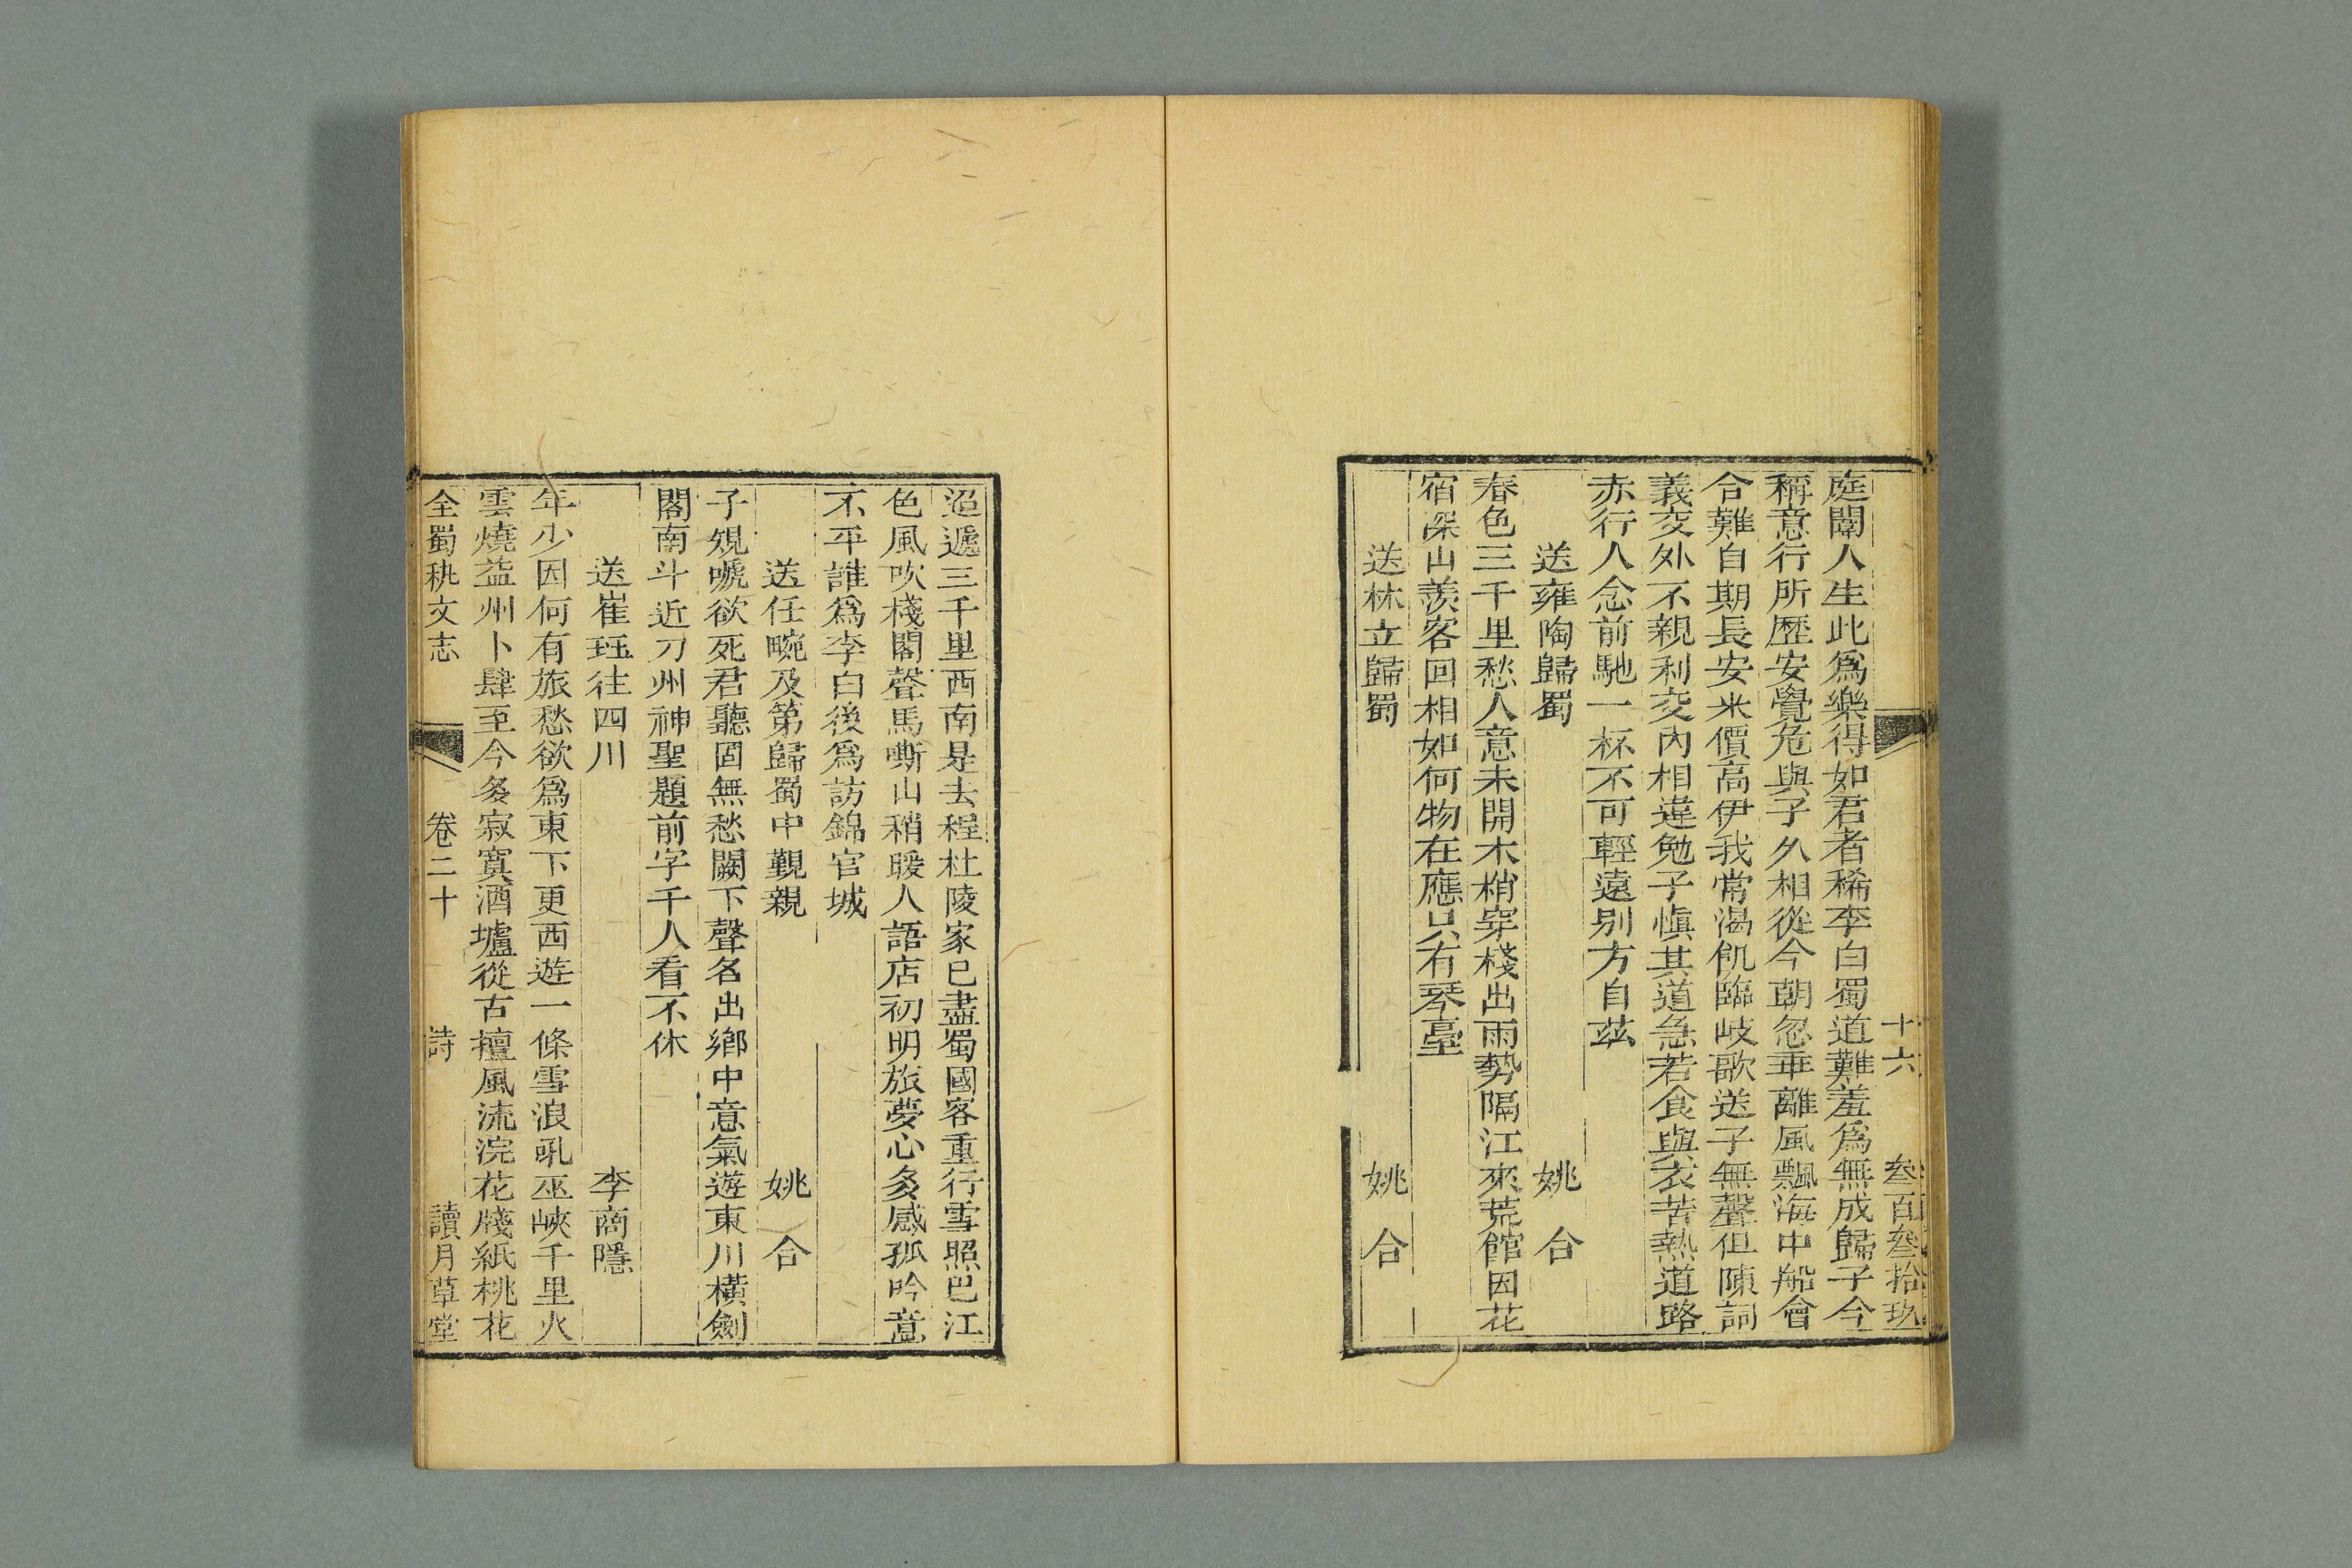 十六　叁百叁拾玖
庭闈人生此爲樂得如君者稀李白蜀道難羞爲無成歸子今
稱意行所歷安覺危與子久相從今朝忽乖離風飄海中船會
合難自期長安米價高伊我常渴飢臨岐歌送子無聲但陳詞
義交外不親利交內相違勉子愼其道急若食與衣苦熱道路
赤行人念前馳一杯不可輕遠别方自茲
送雍陶歸蜀　姚合
春色三千里愁人意未開木梢穿棧出雨勢隔江來荒館因花
宿深山羨客回相如何物在應只有琴臺
送林立歸蜀　姚合
迢遞三千里西南是去程杜陵家已盡蜀國客重行雪照巴江
色風吹棧閣聲馬嘶山稍暖人語店初明旅夢心多感孤吟意
不平誰爲李白後爲訪錦官城
送任畹及第歸蜀中覲親　姚合
子規嗁欲死君聽固無愁闕下聲名出鄉中意氣遊東川橫劍
閣南斗近刀州神聖題前字千人看不休
送崔珏往四川　李商隱
年少因何有旅愁欲爲東下更西遊一條雪浪吼巫峽千里火
雲燒益州卜肆至今多寂寞酒壚從古擅風流浣花牋紙桃花
全蜀秇文志　卷二十　詩　讀月草堂